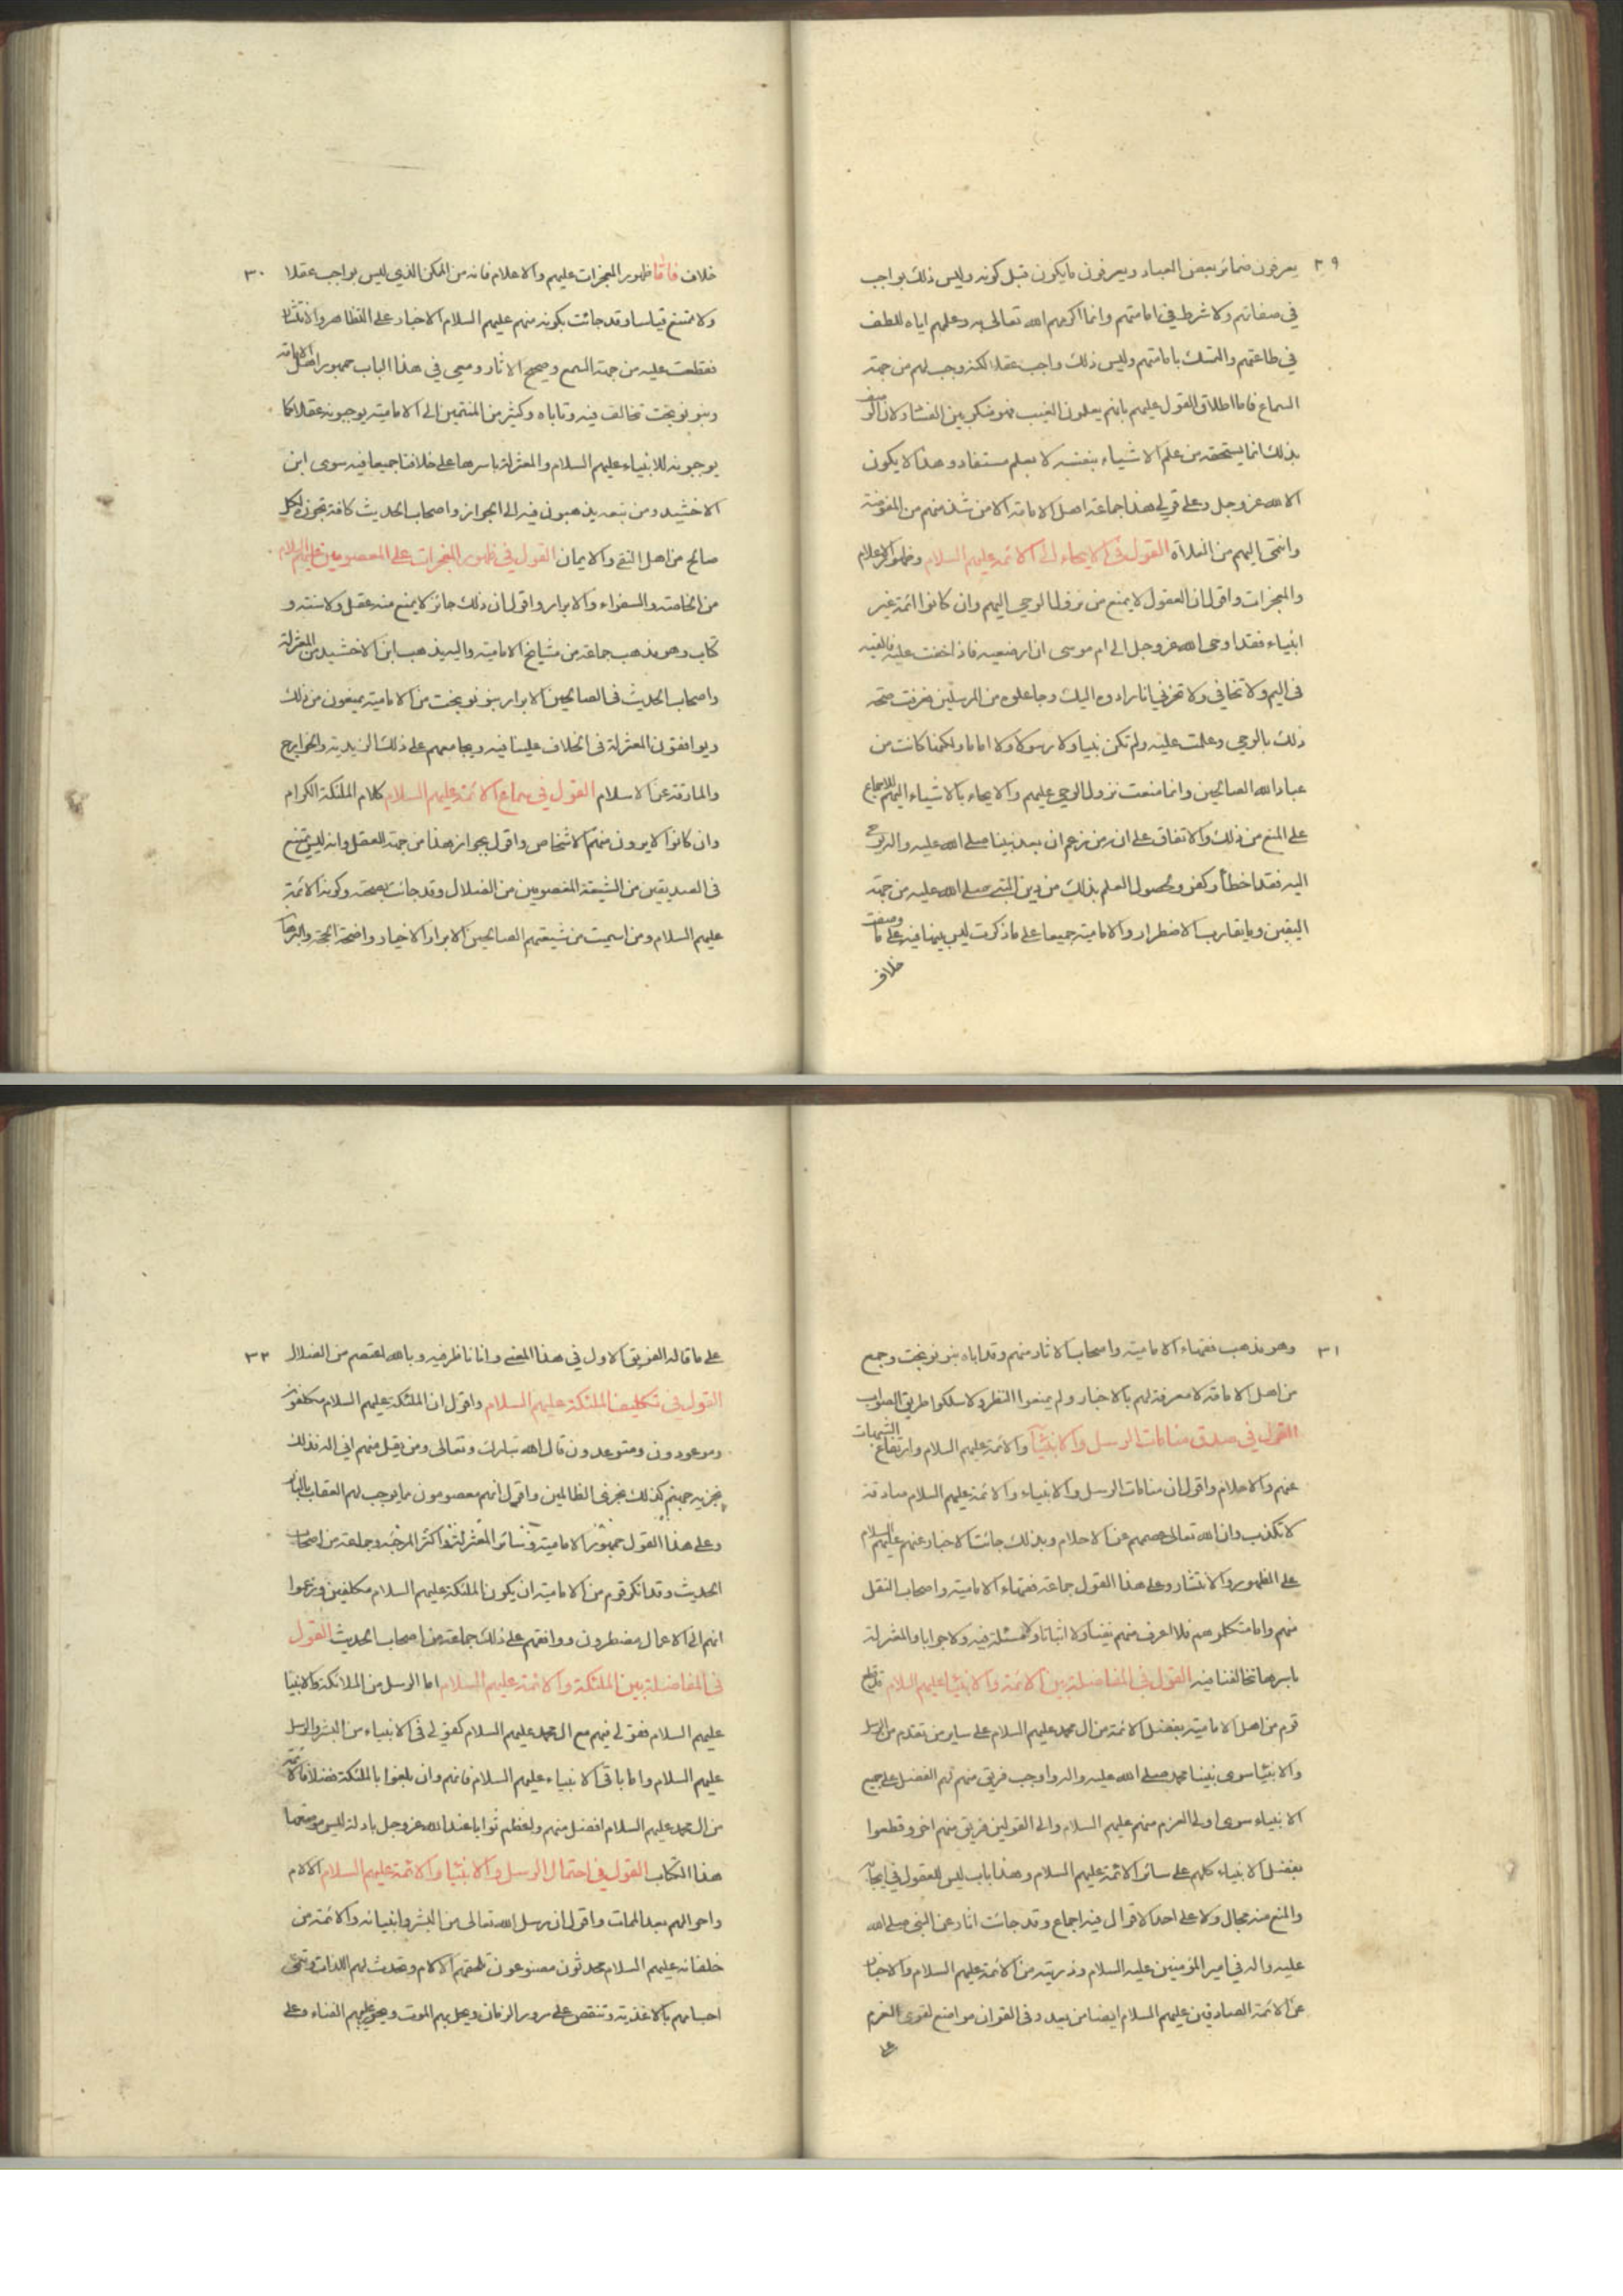 ٢٩
يعرفون ضمائر بعض العباد ويعرفون مايكون قبل كونه وليس ذلك بواجب
في صفاتهم ولا شرط في امامتهم وانما اكرمهم الله تعالى به وعلمهم اياه للطف
في طاعتهم والتمسك بامامتهم وليس ذلك واجب عقلا لكنه وجب لهم من جهة
السماع فاما اطلاق القول عليهم بانهم يعلمون الغيب فهو منكر بين الفساد لان الوصف
بذلك انما يستحقه من علم الاشياء بنفسه لا بعلم مستفاد وهذا لا يكون
الا الله عز وجل وعلى قولي هذا جماعة اهل الامامة الا من شذ منهم من المفوضة
وانتمى اليهم من الغلاة القول في الايحاء الى الائمة عليهم السلام وظهور الاعلام
والمعجزات واقول ان العقول لا يمنع من نزول الوحي اليهم وان كانوا ائمة غير
انبياء فقد اوحى الله عز وجل الى ام موسى ان ارضعيه فاذا خفت عليه فالقيه
في اليم ولا تخافي ولا تحزني انا رادوه اليك وجاعلوه من المرسلين فعرفت صحة
ذلك بالوحي وعلمت عليه ولم تكن نبيا ولا رسولا ولا اماما ولكنها كانت من
عباد الله الصالحين وانما منعت نزول الوحي عليهم والايحاء بالاشياء اليهم للاجماع
على المنع من ذلك والاتفاق على ان من زعم ان بعد نبينا صلى الله عليه واله يوحى
اليه فقد اخطأ وكفر ولحصول العلم بذلك من دين النبي صلى الله عليه من جهة
اليقين ومايقارب الاضطرار والامامية جميعا على ماذكرت ليس بينها فيه على ما وصفت
خلاف
٣٠
خلاف فاما ظهور المعجزات عليهم والاعلام فانه من الممكن الذي ليس بواجب عقلا
ولا ممتنع قياسا وقد جائت بكونه منهم عليهم السلام الاخبار على التظاهر والانتشار
فقطعت عليه من جهة السمع وصحيح الاثار ومعي في هذا الباب جمهور اهل الامامة
وبنو نوبخت تخالف فيه وتاباه وكثير من المنتمين الى الامامية يوجبونه عقلا كما
يوجبونه للانبياء عليهم السلام والمعتزلة باسرها على خلافنا جميعا فيه سوى ابن
الاخشيد ومن تبعه يذهبون فيه الى الجواز واصحاب الحديث كافة تجوزه لكل
صالح من اهل التقى والايمان القول في ظهور المعجزات على المعصومين عليهم السلام
من الخاصة والسفراء والابرار واقول ان ذلك جائز لا يمنع منه عقل ولا سنة و
كتاب وهو مذهب جماعة من مشايخ الامامية واليه يذهب ابن الاخشيد من المعتزلة
واصحاب الحديث في الصالحين الابرار بنو نوبخت من الامامية يمنعون من ذلك
ويوافقون المعتزلة في الخلاف علينا فيه ويجامعهم على ذلك الزيدية والخوارج
والمارقة عن الاسلام القول في سماع الائمة عليهم السلام كلام الملئكة الكرام
وان كانوا لا يرون منهم الاشخاص واقول بجواز هذا من جهة العقل وانه ليس بممتنع
في الصديقين من الشيعة المعصومين من الضلال وقد جائت بصحته وكونه الائمة
عليهم السلام ومن اسميت من شيعتهم الصالحين الابرار الاخيار واضحة الحجة والبرهان
٣١
وهو مذهب فقهاء الامامية واصحاب الاثار منهم وقد اباه بنو نوبخت وجمع
من اهل الامامة لا معرفة لهم بالاخبار ولم يمنعوا النظر ولا سلكوا طريق الصواب
القول في صدق منامات الرسل والانبياء والائمة عليهم السلام وارتفاع الشبهات
عنهم والاحلام واقول ان منامات الرسل والانبياء والائمة عليهم السلام صادقة
لا تكذب وان الله تعالى عصمهم عن الاحلام وبذلك جائت الاخبار عنهم عليهم السلام
على الظهور والانتشار وعلى هذا القول جماعة فقهاء الامامية واصحاب النقل
منهم واما متكلموهم فلا اعرف منهم نفيا ولا اثباتا ولا مسئلة فيه ولا جوابا والمعتزلة
باسرها تخالفنا فيه القول في المفاضلة بين الائمة والانبيا عليهم السلام قد قطع
قوم من اهل الامامية بفضل الائمة من ال محمد عليهم السلام على ساير من تقدم من الرسل
والانبيا سوى نبينا محمد صلى الله عليه واله واوجب فريق منهم لهم الفضل على جميع
الانبياء سوى اولى العزم منهم عليهم السلام والى القولين فريق منهم اخر وقطعوا
بفضل الانبياء كلهم على سائر الائمة عليهم السلام وهذا باب ليس للعقول في ايجابه
والمنع منه مجال ولا على احد الاقوال فيه اجماع وقد جائت اثار عن النبي صلى الله
عليه واله في امير المؤمنين عليه السلام وذريته من الائمة عليهم السلام والاخبار
عن الائمة الصادقين عليهم السلام ايضا من بعد وفي القران مواضع لقوى العزم
على
٣٢
على ما قاله الفريق الاول في هذا المعنى وانا ناظر فيه وبالله اعتصم من الضلال
القول في تكليف الملئكة عليهم السلام واقول ان الملئكة عليهم السلام مكلفون
وموعودون ومتوعدون قال الله تبارك وتعالى ومن يقل منهم اني اله فذلك
نجزيه جهنم كذلك نجزي الظالمين واقول انهم معصومون مما يوجب لهم العقاب بالنار
وعلى هذا القول جمهور الامامية وسائر المعتزلة واكثر المرجئة وجماعة من اصحاب
الحديث وقد انكر قوم من الامامية ان يكون الملئكة عليهم السلام مكلفين وزعموا
انهم الى الاعمال مضطرون ووافقهم على ذلك جماعة من اصحاب الحديث القول
في المفاضلة بين الملئكة والائمة عليهم السلام اما الرسل من الملائكة والانبيا
عليهم السلام فقولي فيهم مع ال محمد عليهم السلام كقولي في الانبياء من البشر والرسل
عليهم السلام واما باقي الانبياء عليهم السلام فانهم وان بلغوا بالملئكة فضلا فالائمة
من ال محمد عليهم السلام افضل منهم واعظم ثوابا عند الله عز وجل بادلة ليس موضعها
هذا الكتاب القول في احتمال الرسل والانبيا والائمة عليهم السلام الالام
واحوالهم بعد الممات واقول ان رسل الله تعالى من البشر وانبيائه والائمة من
خلفائه عليهم السلام محدثون مصنوعون تلحقهم الالام وتحدث لهم اللذات وتنمى
اجسامهم بالاغذية وتنقص على مرور الزمان ويحل بهم الموت ويجوز عليهم الفناء وعلى